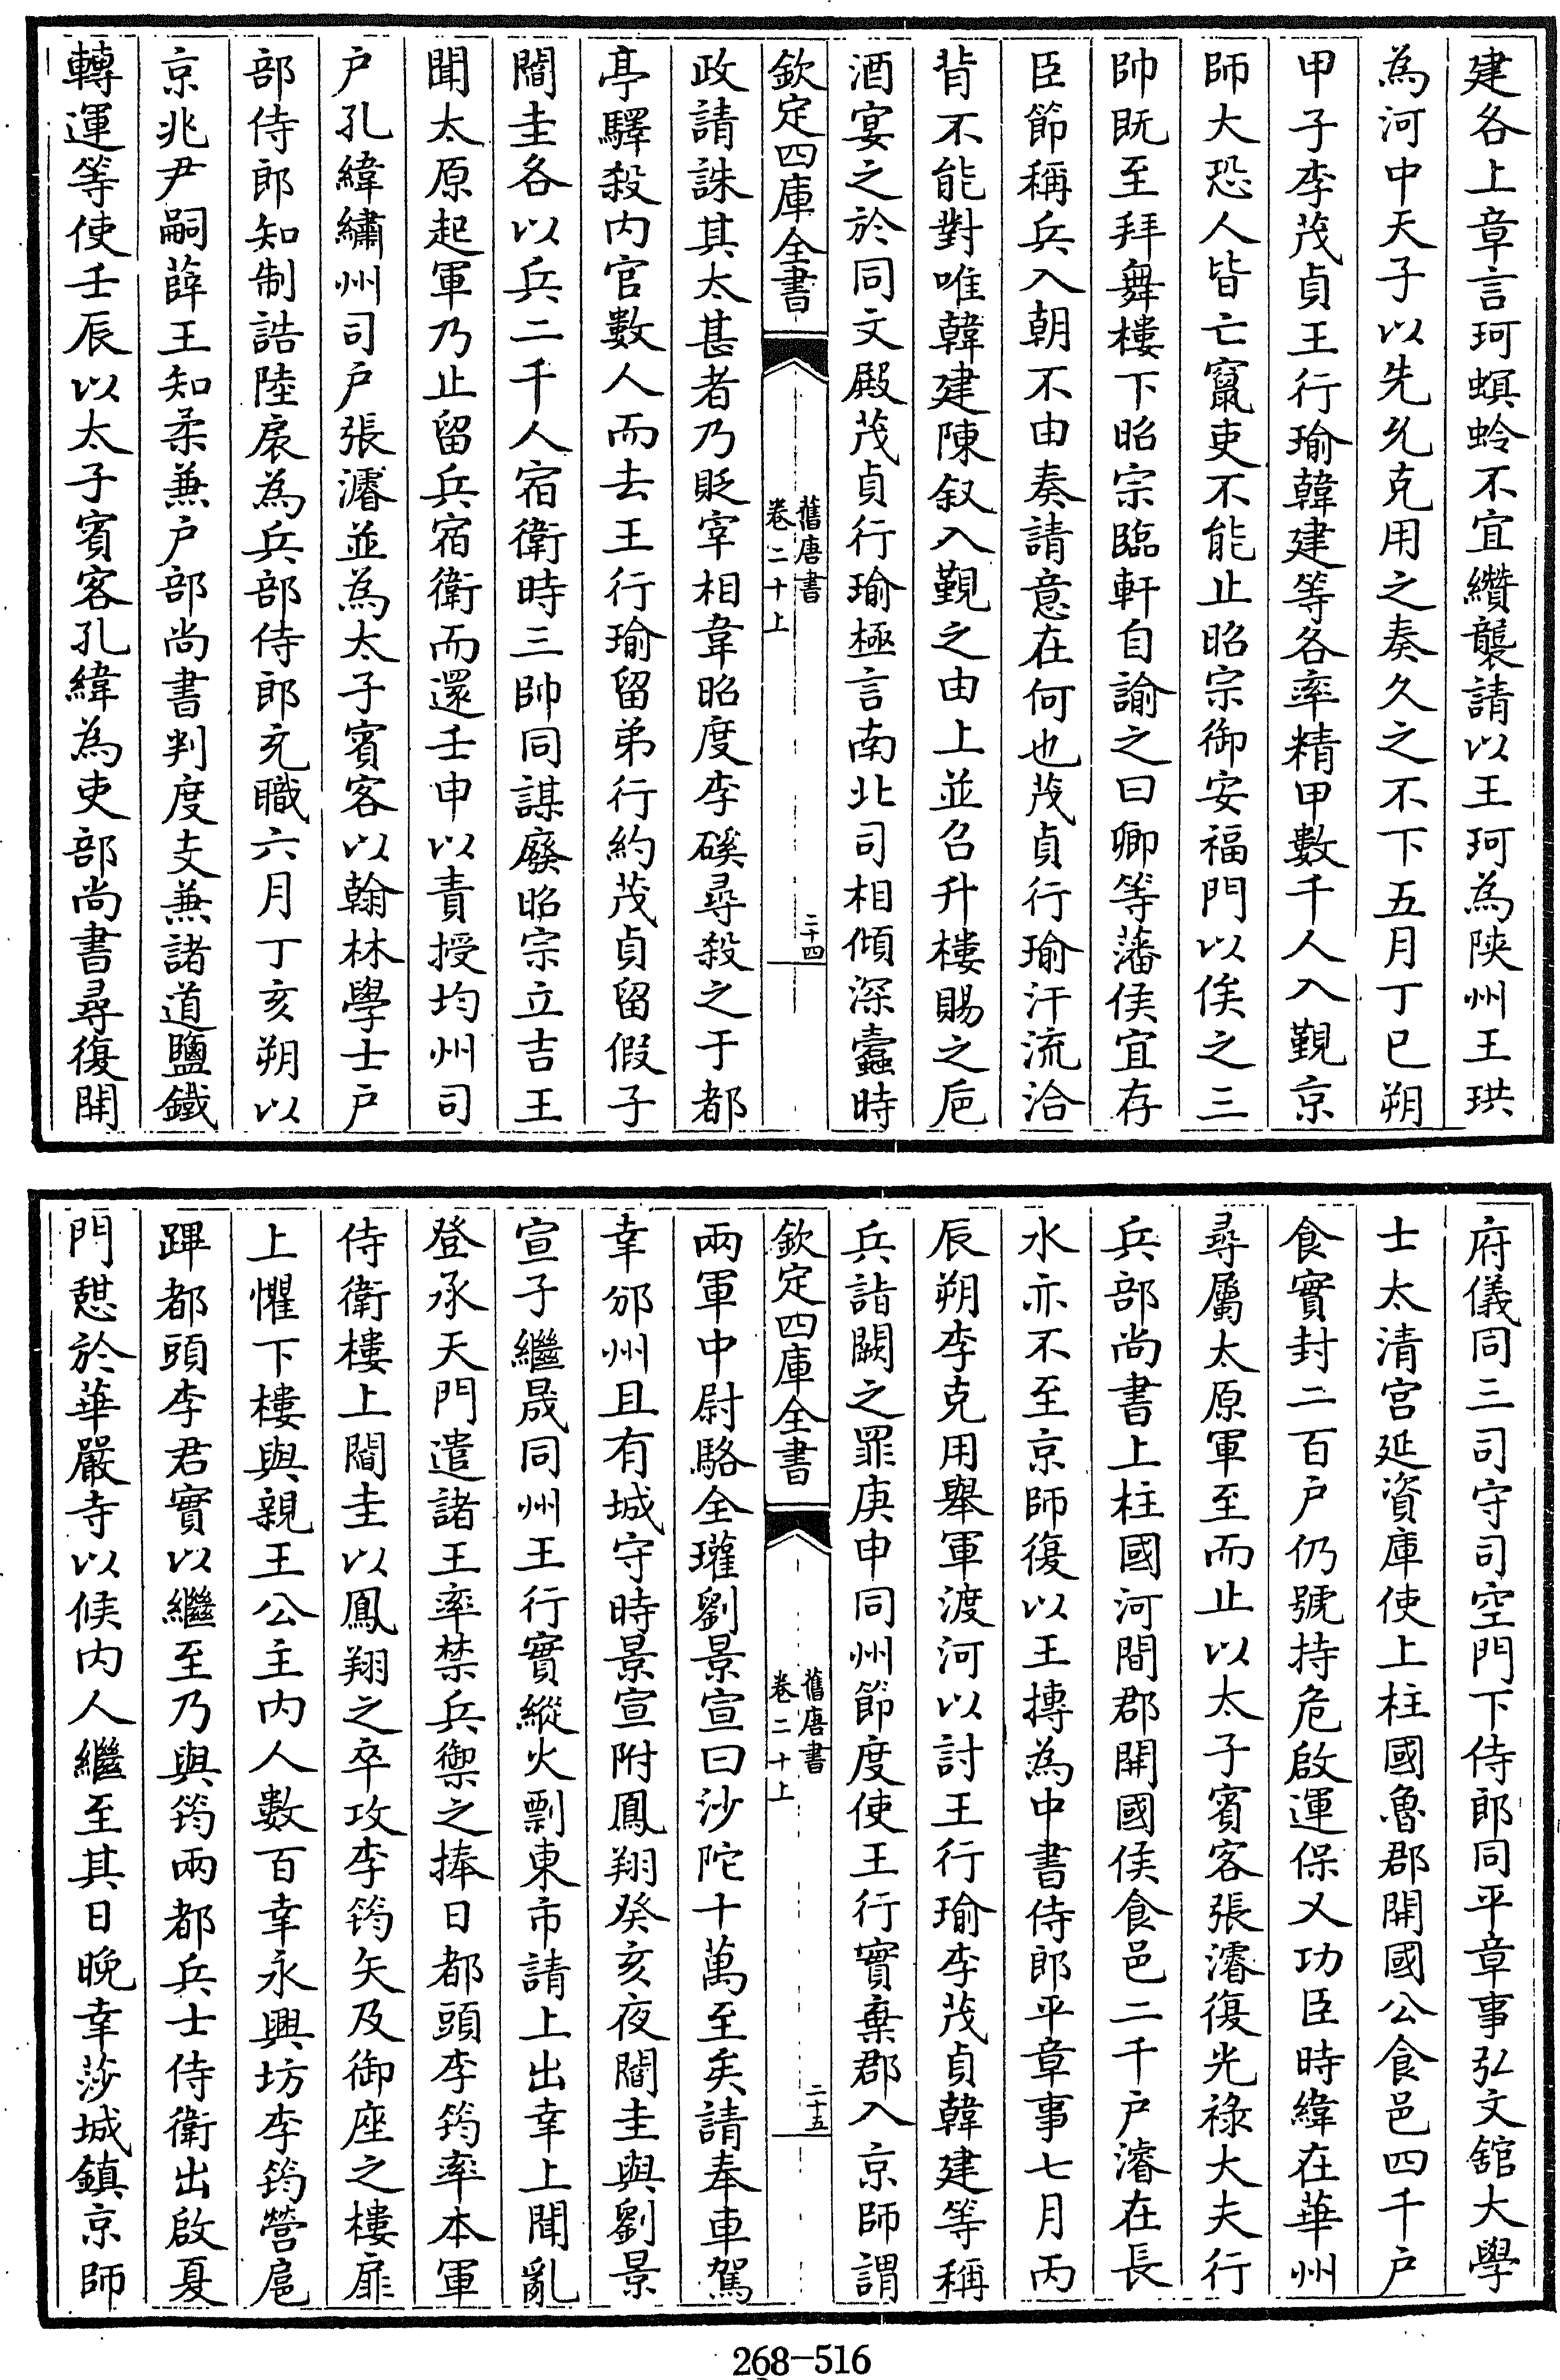 建各上章言珂螟蛉不宜纘襲請以王珂為陜州王珙
為河中天子以先允克用之奏久之不下五月丁巳朔
甲子李茂貞王行瑜韓建等各率精甲數千人入覲京
師大恐人皆亡竄吏不能止昭宗御安福門以俟之三
帥既至拜舞樓下昭宗臨軒自諭之曰卿等藩侯宜存
臣節稱兵入朝不由奏請意在何也茂貞行瑜汗流洽
背不能對唯韓建陳叙入覲之由上並召升樓賜之巵
酒宴之於同文殿茂貞行瑜極言南北司相傾深蠧時
欽定四庫全書
舊唐書
卷二十上
二十四
政請誅其太甚者乃貶宰相韋昭度李磎尋殺之于都
亭驛殺内官數人而去王行瑜留弟行約茂貞留假子
閻圭各以兵二千人宿衛時三帥同謀廢昭宗立吉王
聞太原起軍乃止留兵宿衛而還壬申以責授均州司
户孔緯繡州司户張濬並為太子賓客以翰林學士户
部侍郎知制誥陸扆為兵部侍郎充職六月丁亥朔以
京兆尹嗣薛王知柔兼户部尚書判度支兼諸道鹽鐵
轉運等使壬辰以太子賓客孔緯為吏部尚書尋復開
府儀同三司守司空門下侍郎同平章事弘文舘大學
士太清宫延資庫使上柱國魯郡開國公食邑四千户
食實封二百户仍號持危啟運保乂功臣時緯在華州
尋屬太原軍至而止以太子賓客張濬復光祿大夫行
兵部尚書上柱國河間郡開國侯食邑二千户濬在長
水亦不至京師復以王摶為中書侍郎平章事七月丙
辰朔李克用舉軍渡河以討王行瑜李茂貞韓建等稱
兵詣闕之罪庚申同州節度使王行實棄郡入京師謂
欽定四庫全書
舊唐書
卷二十上
二十五
兩軍中尉駱全瓘劉景宣曰沙陀十萬至矣請奉車駕
幸邠州且有城守時景宣附鳳翔癸亥夜閻圭與劉景
宣子繼晟同州王行實縱火剽東市請上出幸上聞亂
登承天門遣諸王率禁兵禦之捧日都頭李筠率本軍
侍衛樓上閻圭以鳳翔之卒攻李筠矢及御座之樓扉
上懼下樓與親王公主内人數百幸永興坊李筠營扈
蹕都頭李君實以繼至乃與筠兩都兵士侍衛出啟夏
門憇於華嚴寺以候内人繼至其日晚幸莎城鎮京師
268-516